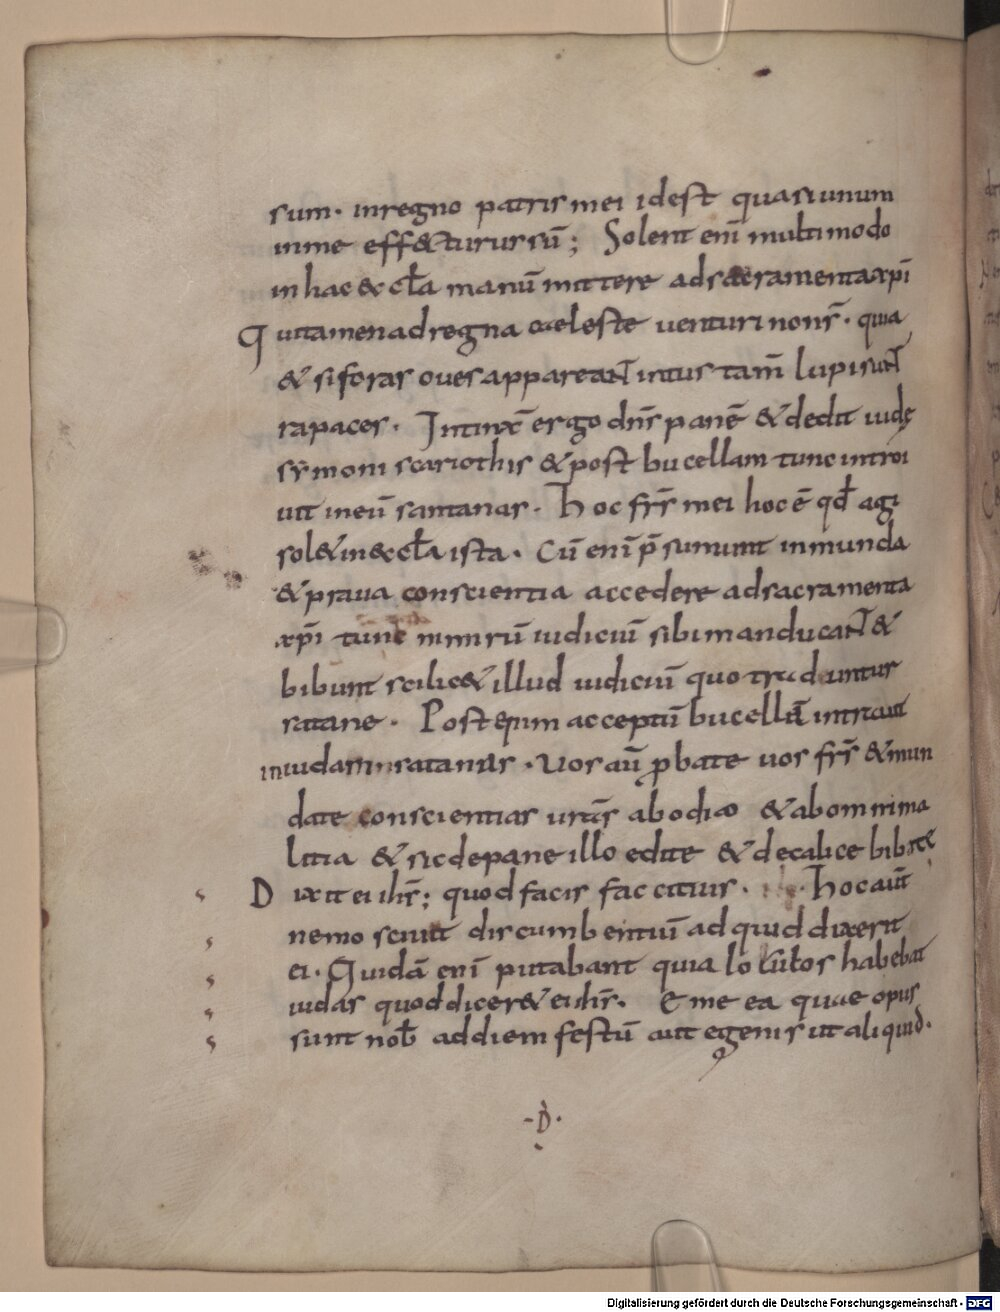 sum · inregno patris mei idest quasiunum
inme eff&urursū; Solent enī multimodo
in hac &cƚa manū mittere adsacramentaxp̄i
Quitamenadregna caeleste uenturi nons̄ · quia
& siforas ouesappareant intus tam̄ lupisunt
rapaces · Intinx̄ ergo dn̄s panē & dedit iudę
symoni scariothis & post bucellam tunc introi
uit ineū satanas · Hoc fr̄s mei hoc ē qđ agi
sol& in&cƚa ista · Cū enī p̄sumunt inmunda
& praua conscientia accedere adsacramenta
xp̄i tunc nimirū iudiciū sibimanducant &
bibunt scilic& illud iudiciū quo traduntur
satane · Postquam acceptū bucellā intrauit
iniudam satanas · Uos aū probate uos fr̄s & mun
date conscientias ur̄as abodio & abomnima
litia & sicdepane illo edite & decalice bibite
Dixit ei ih̄s; quod facis fac citius · Hocaūt
nemo sciuit discumbentiū ad quid dixerit
ei · Quidā enī putabant quia loculos habebat
iudas quoddicer& ei ih̄s · Eme ea quae opus
sunt nob̄ addiem festū aut egenis ut aliquid ·
· D ·
Digitalisierung gefördert durch die Deutsche Forschungsgemeinschaft - DFG